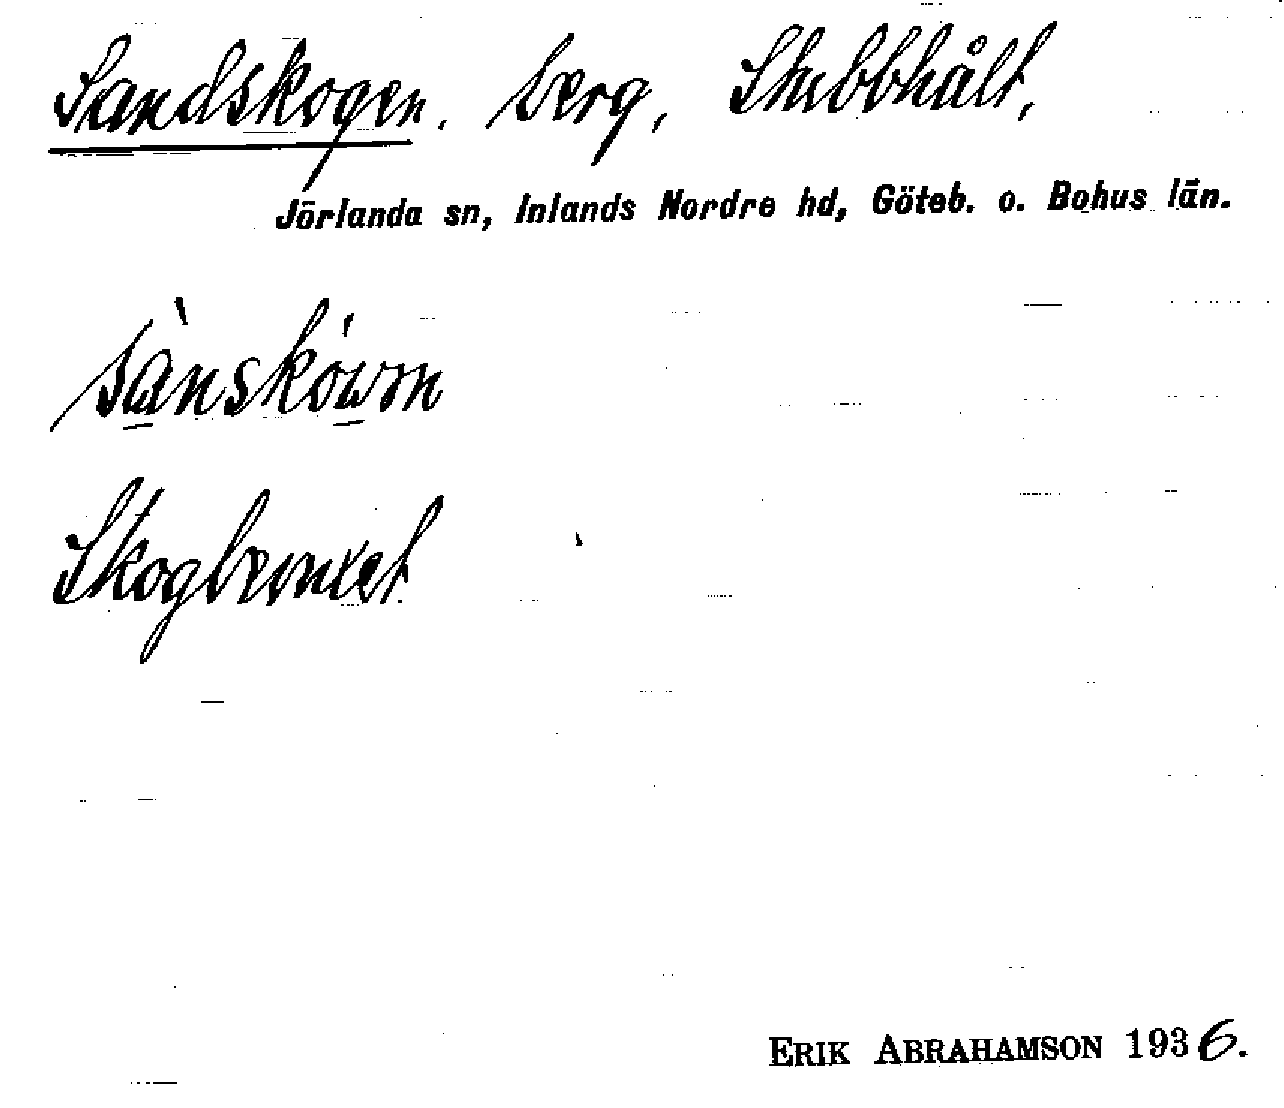 Sandskogen, berg, Stubbhålt,
Jörlanda sn, Inlands Nordre hd, Göteb. o. Bohus län.
ERIK ABRAHAMSON 1936.